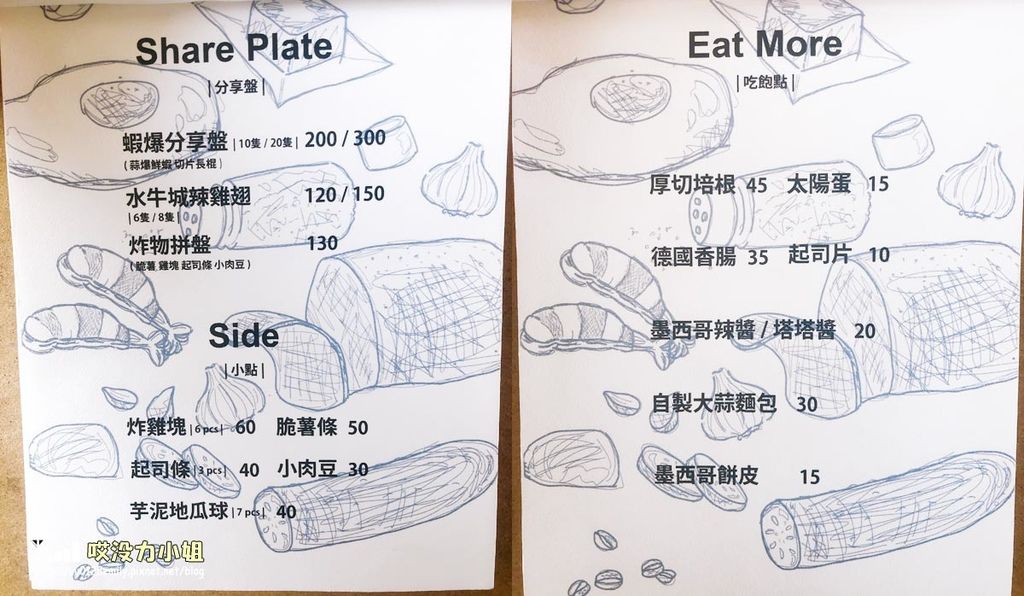 Share Plate
|分享盤|
蝦爆分享盤 |10隻 / 20隻| 200 / 300
(蒜爆鮮蝦 切片長棍)
水牛城辣雞翅 120 / 150
|6隻 / 8隻|
炸物拼盤 130
(脆薯 雞塊 起司條 小肉豆)
Side
|小點|
炸雞塊 |6 pcs| 60 脆薯條 50
起司條 |3 pcs| 40 小肉豆 30
芋泥地瓜球 |7 pcs| 40
哎没力小姐
Eat More
|吃飽點|
厚切培根 45 太陽蛋 15
德國香腸 35 起司片 10
墨西哥辣醬 / 塔塔醬 20
自製大蒜麵包 30
墨西哥餅皮 15